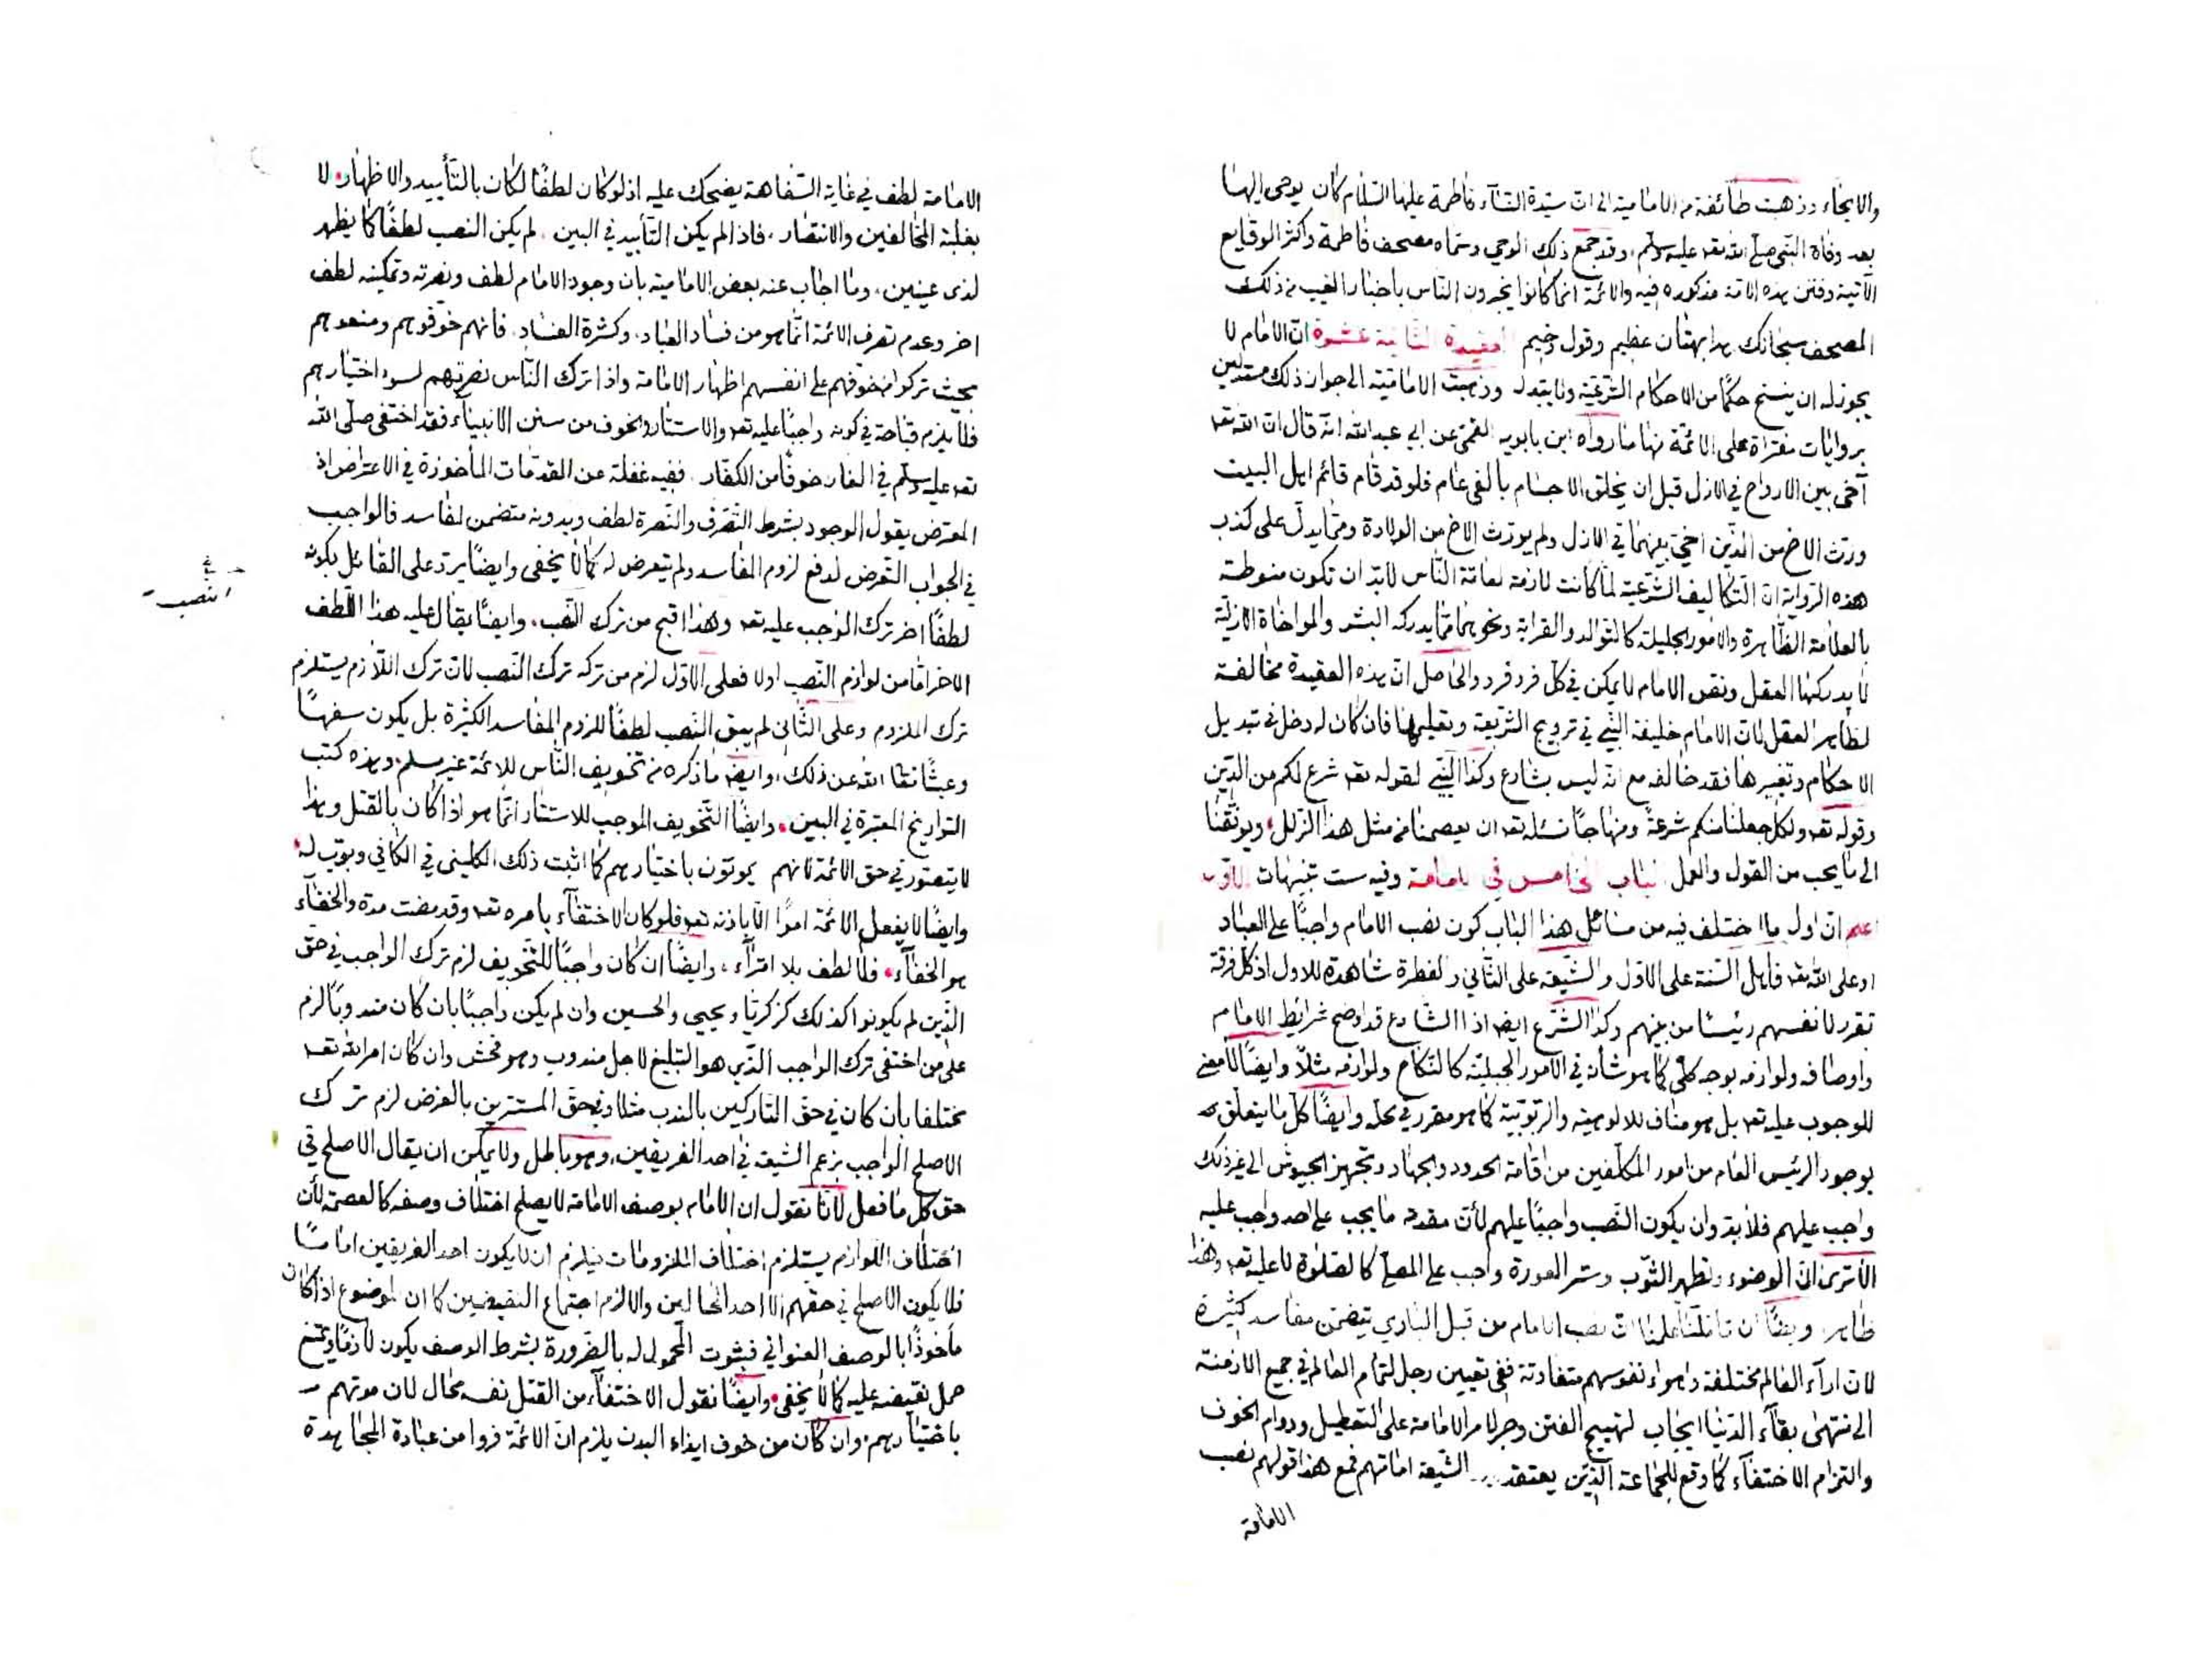 والايحاء وذهبت طائفة من الامامية الى ان سيدة النسآء فاطمة عليها السلام كان يوحى اليها
بعد وفاة النبى صلى الله تعه عليه وسلم، وقد جمع ذلك الوحي وسماه مصحف فاطمة واكثر الوقايع
الآتية وفتن هذه الامة مذكوره فيه والائمة انما كانوا يخبرون الناس باخبار الغيب من ذلك
المصحف سبحانك هذا بهتان عظيم وقول وخيم العقيدة الثانية عشرة ان الامام لا
يجوز له ان ينسخ حكما من الاحكام الشرعية ولا يبدل وذهبت الامامية الى جواز ذلك مستدلين
بروايات مفتراة على الائمة منها ما رواه ابن بابويه القمى عن ابي عبد الله انه قال ان الله تعه
آخى بين الارواح في الازل قبل ان يخلق الاجسام بالفى عام فلو قد قام قائم اهل البيت
ورث الاخ من الذين اخى بينهما في الازل ولم يورث الاخ من الولادة ومما يدل على كذب
هذه الرواية ان التكاليف الشرعية لما كانت لازمة لعامة الناس لابد ان تكون منوطة
بالعلامة الظاهرة والامور الجليلة كالتوالد والقرابة ونحوهما مما يدركه البشر والمواخاة الازلية
لا يدركها العقل ونص الامام لا يمكن في كل فرد فرد والحاصل ان هذه العقيدة مخالفة
لظاهر العقل لان الامام خليفة النبي في ترويج الشريعة وتعليمها فان كان له دخل في تبديل
الاحكام وتغييرها فقد خالفه مع انه ليس بشارع وكذا النبي لقوله تعه شرع لكم من الدين
وقوله تعه ولكل جعلنا منكم شرعة ومنهاجا نسئله تعه ان يعصمنا من مثل هذا الزلل، ويوفقنا
الى ما يحب من القول والعمل الباب الخامس في الامامة وفيه ست تنبيهات الاول
اعلم ان اول ما اختلف فيه من مسائل هذا الباب كون نصب الامام واجبا على العباد
او على الله تعه فاهل السنة على الاول والشيعة على الثاني والفطرة شاهدة للاول اذ كل فرقة
تقرر لانفسهم رئيسا من بينهم وكذا الشرع ايضه اذ الشارع قد اوضح شرائط الامام
واوصافه ولوازمه بوجه كلي كما هو شأنه في الامور الجبلية كالنكاح ولوازمه مثلا وايضا لا معنى
للوجوب عليه تعه بل هو مناف للالوهية والربوبية كما هو مقرر في محله وايضا كل ما يتعلق
بوجود الرئيس العام من امور المكلفين من اقامة الحدود والجهاد وتجهيز الجيوش الى غير ذلك
واجب عليهم فلا بد وان يكون النصب واجبا عليهم لأن مقدمة ما يجب على احد واجب عليه
الا ترى ان الوضوء وتطهير الثوب وستر العورة واجب على المصلى كالصلوة لا عليه تعه وهذا
ظاهر وايضا ان تأملنا علمنا ان نصب الامام من قبل الباري يتضمن مفاسد كثيرة
لان اراء العالم مختلفة واهواء نفوسهم متفاوتة ففي تعيين رجل لتمام العالم في جميع الازمنة
الى منتهى بقاء الدنيا ايجاب لتهييج الفتن وجر لامر الامامة على التعطيل ودوام الخوف
والتزام الاختفآء كما وقع للجماعة الذين يعتقد الشيعة امامتهم فمع هذا قولهم نصب
الامامة
الامامة لطف في غاية السفاهة يضحك عليه اذ لو كان لطفا لكان بالتأييد والاظهار، لا
بغلبة المخالفين والانتصار، فاذا لم يكن التأييد في البين، لم يكن النصب لطفا كما يظهر
لذى عينين، وما اجاب عنه بعض الامامية بان وجود الامام لطف ونصرته وتمكينه لطف
اخر وعدم تصرف الائمة انما هو من فساد العباد، وكثرة الفساد، فانهم خوفوهم ومنعوهم
بحيث تركوا من خوفهم على انفسهم اظهار الامامة واذا ترك الناس نصرتهم لسوء اختيارهم
فلا يلزم قباحة في كونه واجبا عليه تعه والاستتار والخوف من سنن الانبيآء فقد اختفى صلى الله
تعه عليه وسلم في الغار خوفا من الكفار، ففيه غفلة عن المقدمات المأخوذة في الاعتراض اذ
المعترض يقول الوجود بشرط التصرف والنصرة لطف وبدونه متضمن لمفاسد فالواجب
في الجواب التعرض لدفع لزوم المفاسد ولم يتعرض له كما لا يخفى وايضا يرد على القائل بكونه
لطفا اخر ترك الواجب عليه تعه وهذا اقبح من ترك النصب، وايضا يقال عليه هذا اللطف
الاخر اما من لوازم النصب اولا فعلى الاول لزم من تركه ترك النصب لان ترك اللازم يستلزم
ترك الملزوم وعلى الثاني لم يبق النصب لطفا للزوم المفاسد الكثيرة بل يكون سفها
وعبثا تعا الله عن ذلك، وايضه ما ذكره من تخويف الناس للائمة غير مسلم، وهذه كتب
التواريخ المعتبرة في البين، وايضا التخويف الموجب للاستتار انما هو اذا كان بالقتل وهذا
لا يتصور في حق الائمة لانهم يموتون باختيارهم كما اثبت ذلك الكليني في الكافي وبوب له،
وايضا لا يفعل الائمة امرا الا باذنه تعه فلو كان الاختفآء بامره تعه وقد مضت مدة والخفآء
هو الخفآء، فلا لطف بلا امتراء، وايضا ان كان واجبا للتخويف لزم ترك الواجب في حق
الذين لم يكونوا كذلك كزكريا ويحيى والحسين وان لم يكن واجبا بان كان مندوبا لزم
على من اختفى ترك الواجب الذي هو التبليغ لاجل مندوب وهو فحش وان كان امر الله تعه
مختلفا بان كان في حق التاركين بالندب مثلا وفي حق المستترين بالفرض لزم ترك
الاصلح الواجب بزعم الشيعة في احد الفريقين، وهو باطل ولا يمكن ان يقال الاصلح في
حق كل ما فعل لانا نقول ان الامام بوصف الامامة لا يصلح اختلاف وصفه كالعصمة لأن
اختلاف اللوازم يستلزم اختلاف الملزومات فيلزم ان لا يكون احد الفريقين اماما
فلا يكون الاصلح في حقهم الا احد الحالين والا لزم اجتماع النقيضين كما ان الموضوع اذا كان
مأخوذا بالوصف العنواني فثبوت المحمول له بالضرورة بشرط الوصف يكون لازما ويمتنع
حمل نقيضه عليه كما لا يخفى، وايضا نقول الاختفآء من القتل نفسه محال لان موتهم
باختيارهم، وان كان من خوف ايذاء البدن يلزم ان الائمة فروا من عبادة المجاهدة
النصب